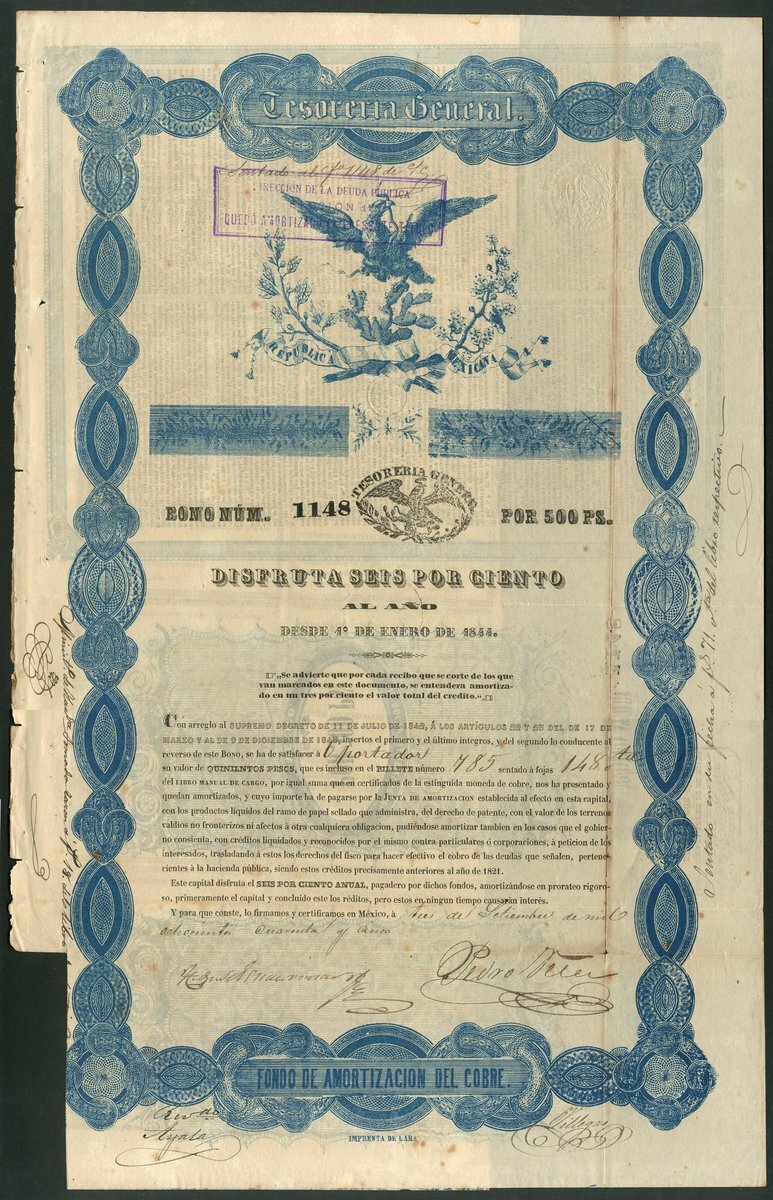 Tesorería General.
Sentado al f° 1148 de
DIRECCION DE LA DEUDA PUBLICA
QUEDÓ AMORTIZADO
REPÚBLICA MEXICANA
TESORERIA GENERAL
BONO NÚM. 1148 POR 500 PS.
DISFRUTA SEIS POR CIENTO
AL AÑO
DESDE 1º DE ENERO DE 1844.
„Se advierte que por cada recibo que se corte de los que
van marcados en este documento, se entendera amortiza-
do en un tres por ciento el valor total del credito.“
Con arreglo al SUPREMO DECRETO DE 11 DE JULIO DE 1842, Á LOS ARTÍCULOS 22 Y 23 DEL DE 17 DE
MARZO Y AL DE 9 DE DICIEMBRE DE 1843, insertos el primero y el último integros, y del segundo lo conducente al
reverso de este Bono, se ha de satisfacer á l portador
su valor de QUINIENTOS PESOS, que es incluso en el BILLETE número 785 sentado à fojas 148
del LIBRO MANUAL DE CARGO, por igual suma que en certificados de la estinguida moneda de cobre, nos ha presentado y
quedan amortizados, y cuyo importe ha de pagarse por la JUNTA DE AMORTIZACION establecida al efecto en esta capital,
con los productos líquidos del ramo de papel sellado que administra, del derecho de patente, con el valor de los terrenos
valdios no fronterizos ni afectos à otra cualquiera obligacion, pudiéndose amortizar tambien en los casos que el gobier-
no consienta, con créditos liquidados y reconocidos por el mismo contra particulares ó corporaciones, à peticion de los
interesados, trasladando á estos los derechos del fisco para hacer efectivo el cobro de las deudas que señalen, pertene-
cientes à la hacienda pública, siendo estos créditos precisamente anteriores al año de 1821.
Este capital disfruta el SEIS POR CIENTO ANUAL, pagadero por dichos fondos, amortizándose en prorateo rigoro-
so, primeramente el capital y concluido este los réditos, pero estos en ningun tiempo causarán interés.
Y para que conste, lo firmamos y certificamos en México, à tres de Setiembre de mil
ochocientos cuarenta y cinco
Pedro
FONDO DE AMORTIZACION DEL COBRE.
Ayala
IMPRENTA DE LARA
Sentado en esta fecha á f° 71 vta del libro respectivo.